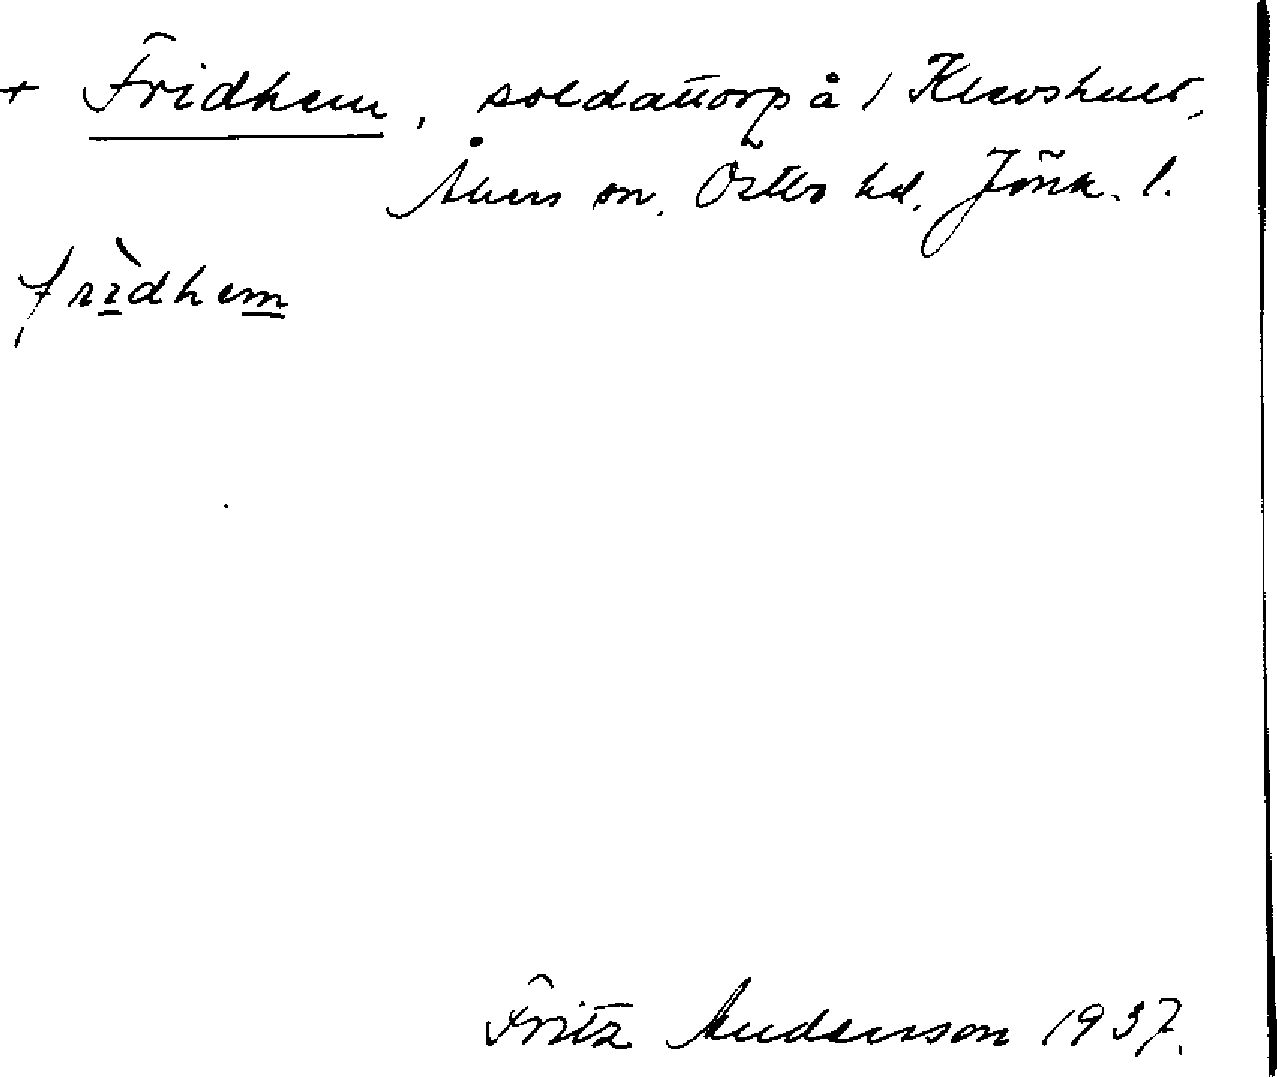 + Fridhem, soldattorp å / Klevshult,
Åkers sn. Östbo hd. Jönk. l.
frìdhem
Fritz Anderson 1937.